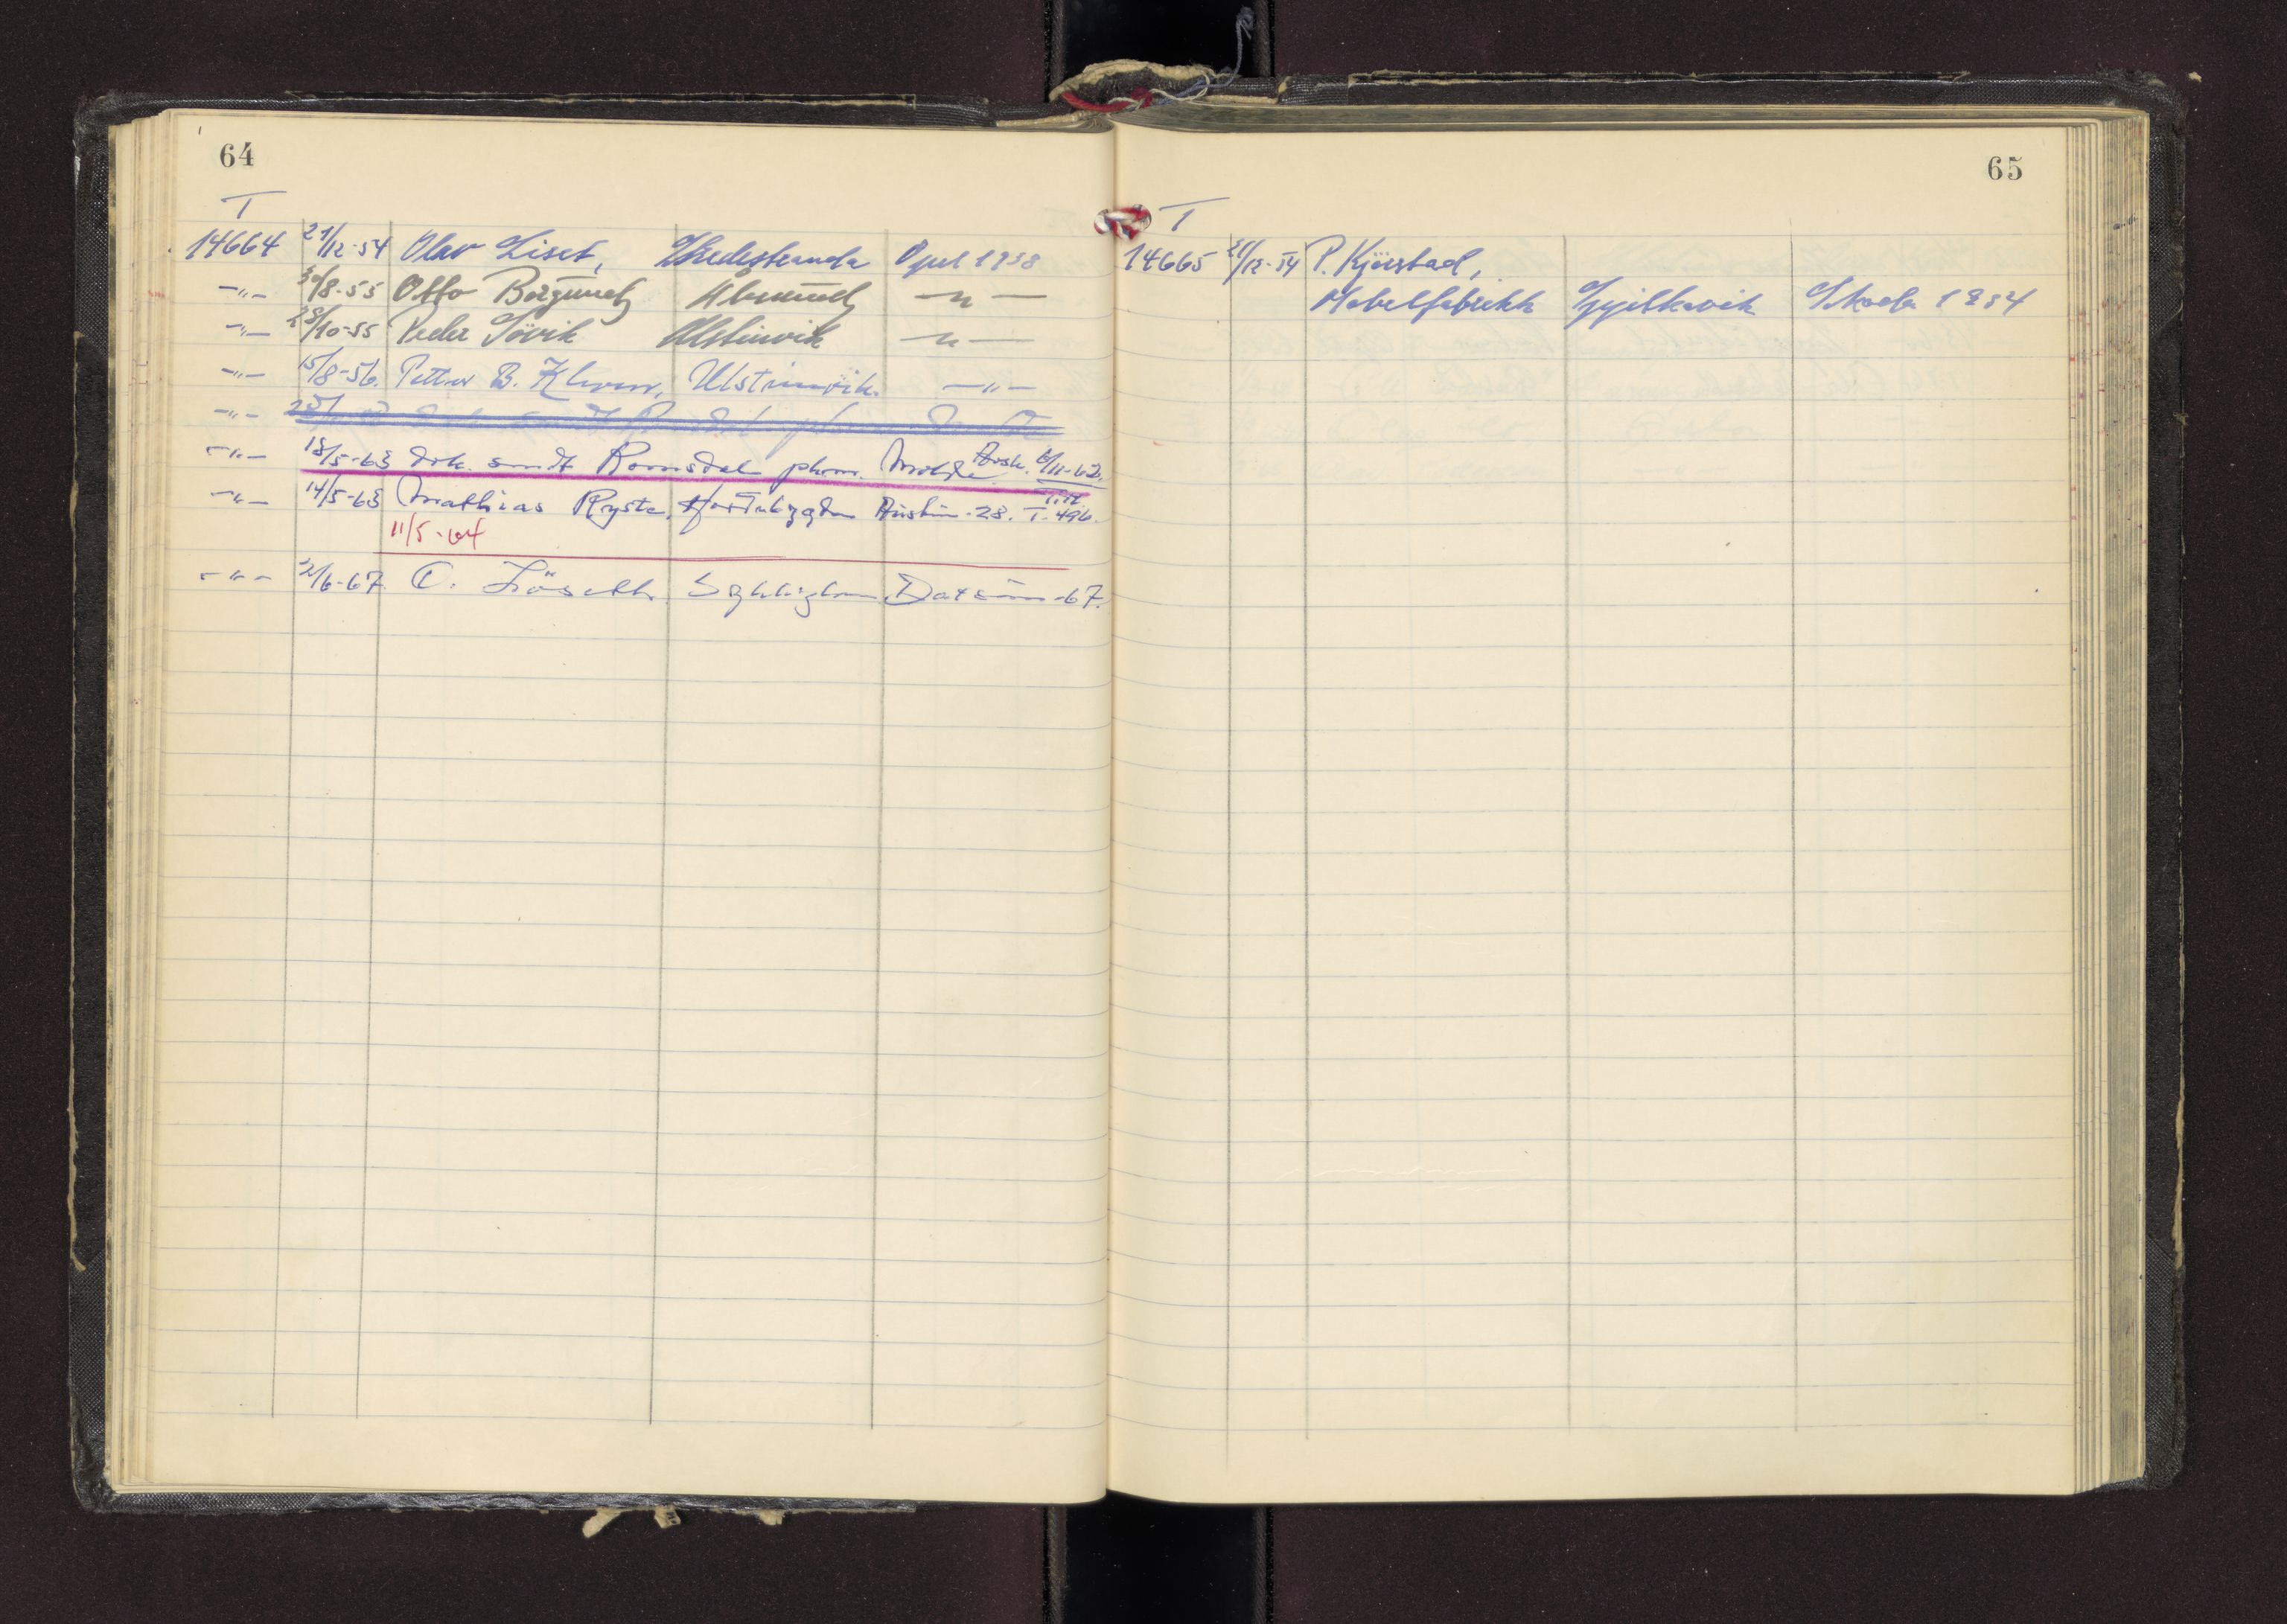 64
T
14664 21/12-54 Olav Liset, Opel 1938
-"- 30/8-55 Otto Borgund -"-
-"- 28/10-55 Peder Sövik Ulsteinvik -"-
-"- 15/8-56. Petter B. Ulsteinvik. -"-
-"-
-"- 18/5-63 dok. sendt Romsdal Molde Avsk. 6/11-62.
-"- 14/5-63 Mathias Ryste, Austin-28. T.496.
11/5-64
-"- 2/6-67. O. Löseth Sykkylven Datsun-67.
65
T
14665 21/12-54 P. Kjörstad,
Møbelfabrikk Sykkylven Skoda 1954